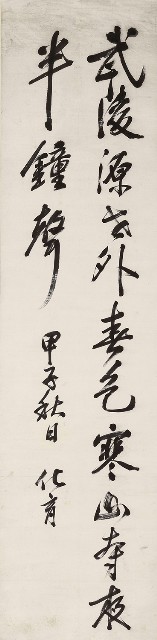 武陵源世外春色寒山寺夜
半鐘聲
甲子秋日 化育